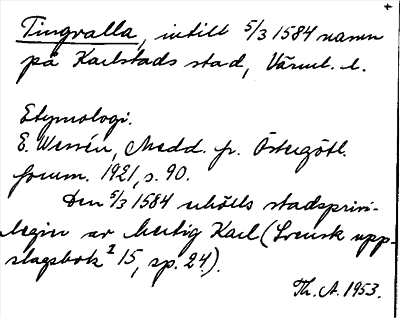 Tingvalla, intill 5/3 1584 namn
på Karlstads stad, Värml. l.
Etymologi.
E. Wessén, Medd. fr. Östergötl.
fornm. 1921, s. 90.
Den 5/3 1584 erhölls stadsprivi-
legier av hertig Karl (Svensk upp-
slagsbok² 15, sp. 24).
Th. A. 1953.